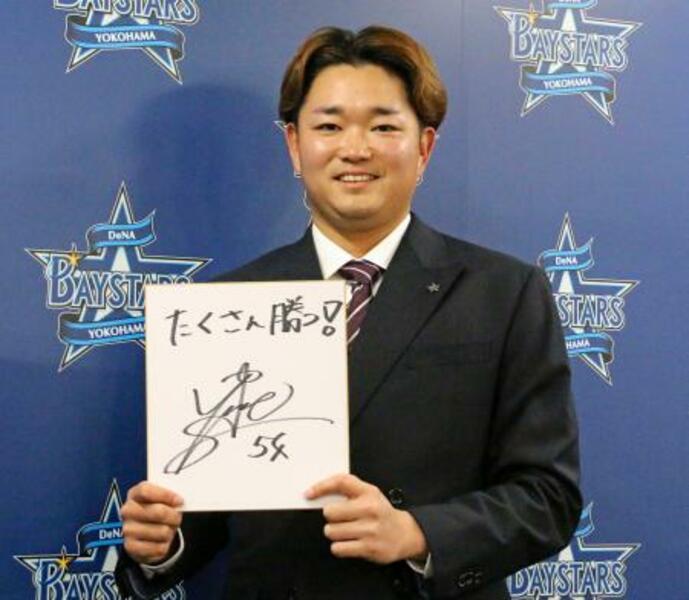 BAYSTARS
YOKOHAMA
DeNA
BAYSTARS
YOKOHAMA
DeNA
BAYSTARS
YOKOHAMA
DeNA
BAYSTARS
YOKOHAMA
たくさん勝つ!
54
DeNA
BAYSTARS
DeNA
BAYSTARS